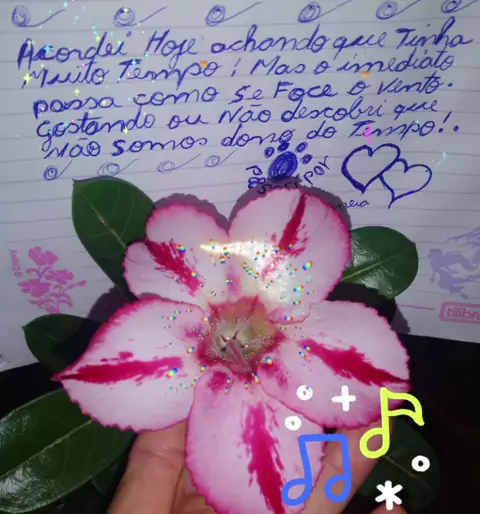 Acordei Hoje achando que Tinha
Muito Tempo! Mas o imediato
passa como se Foce o vento.
Gostando ou Não descobri que
Não somos dono do Tempo!.
tilibra